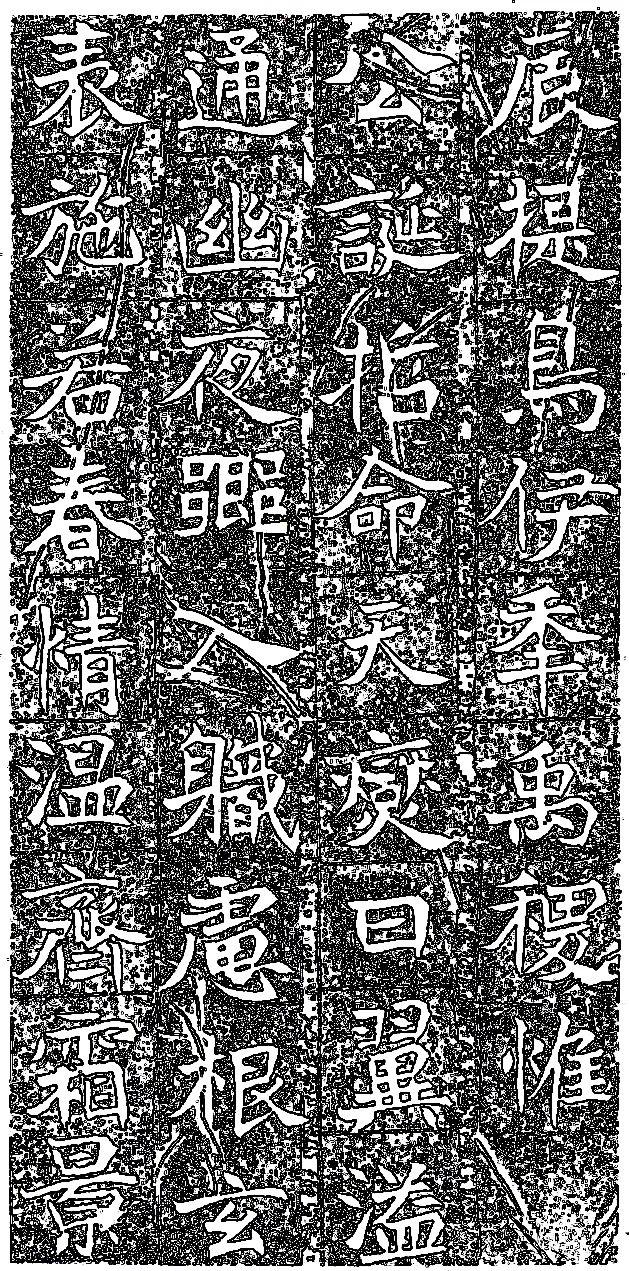 辰提鳥伊季禹稷惟
公誕招命天爽曰翼溢
通幽夜入職慮根玄
表施若春情温齊霜景